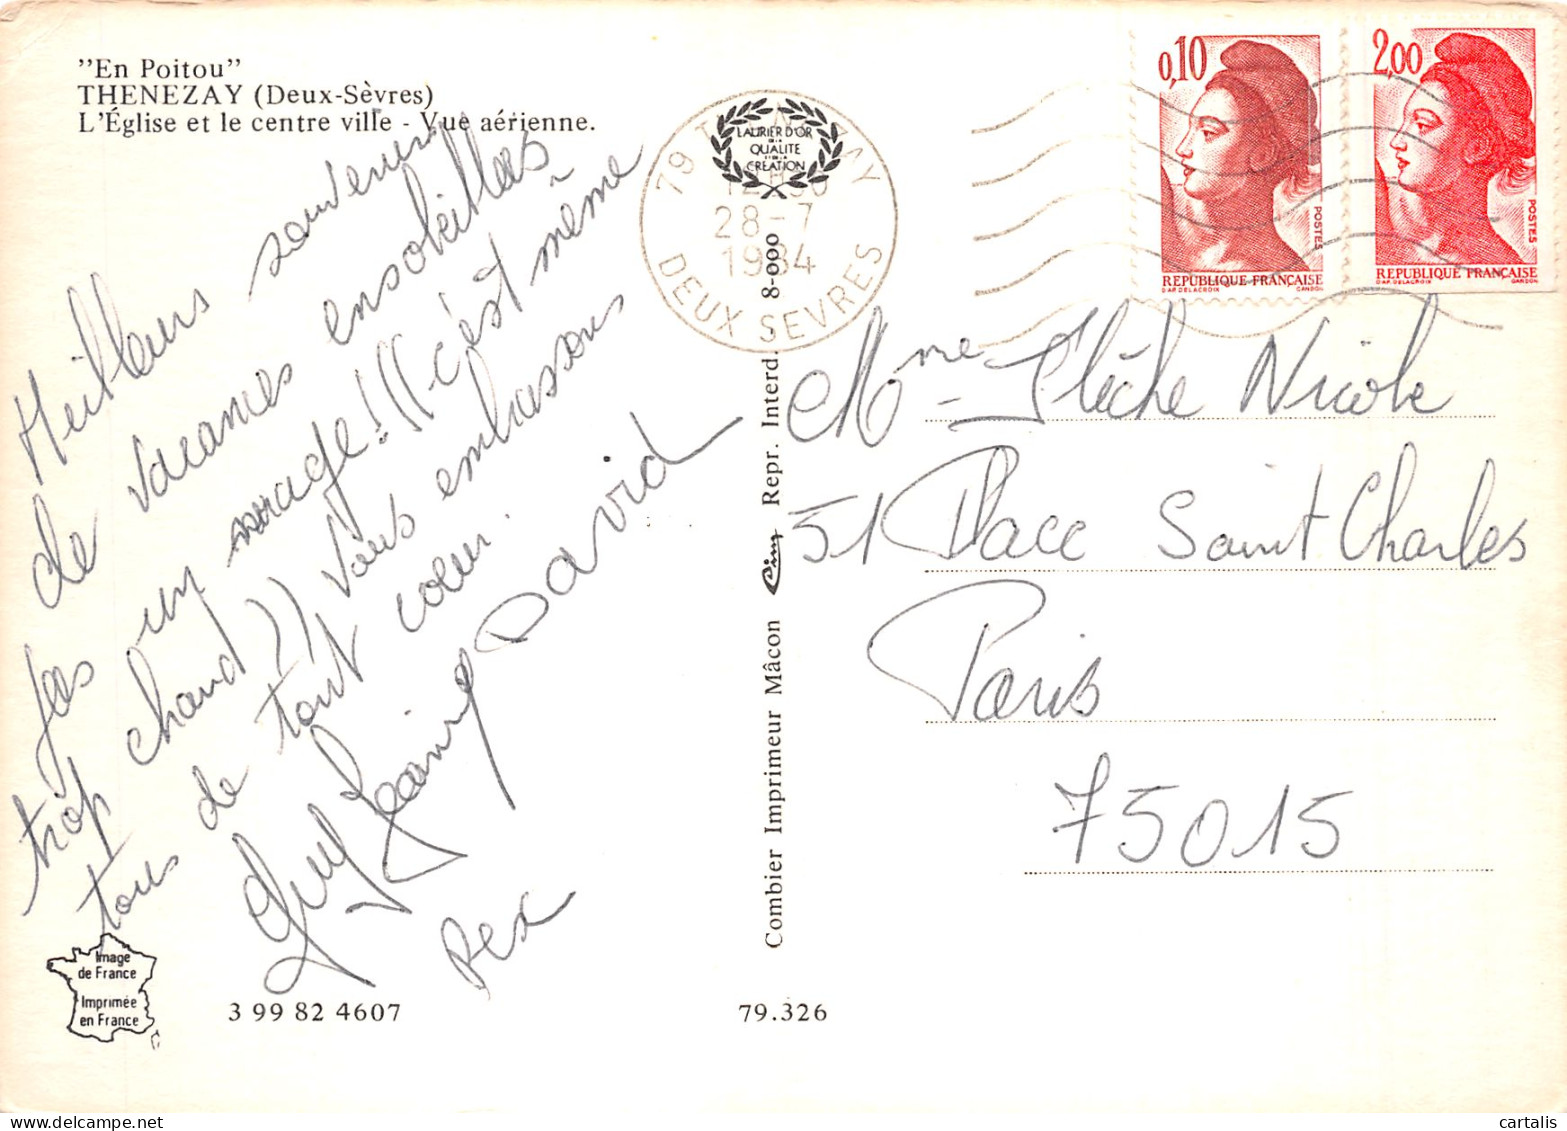 "En Poitou"
THENEZAY (Deux-Sèvres)
L'Église et le centre ville - Vue aérienne.
Meilleurs souvenirs
de vacances ensoleillées
pas un nuage !!! c'est même
trop chaud )) Vous embrassons
tous de tout coeur.
Guy Jeanine David
Rex
Image
de France
Imprimée
en France
3 99 82 4607
79.326
Combier Imprimeur Mâcon Cim Repr. Interd. 8-000
LAURIER D'OR
QUALITE
CREATION
79
28-7
1984
DEUX SEVRES
0,10
POSTES
REPUBLIQUE FRANÇAISE
D'AP. DELACROIX GANDON
2,00
POSTES
REPUBLIQUE FRANÇAISE
D'AP. DELACROIX GANDON
Mme Flèche Nicole
51 Place Saint Charles
Paris
75015
cartalis